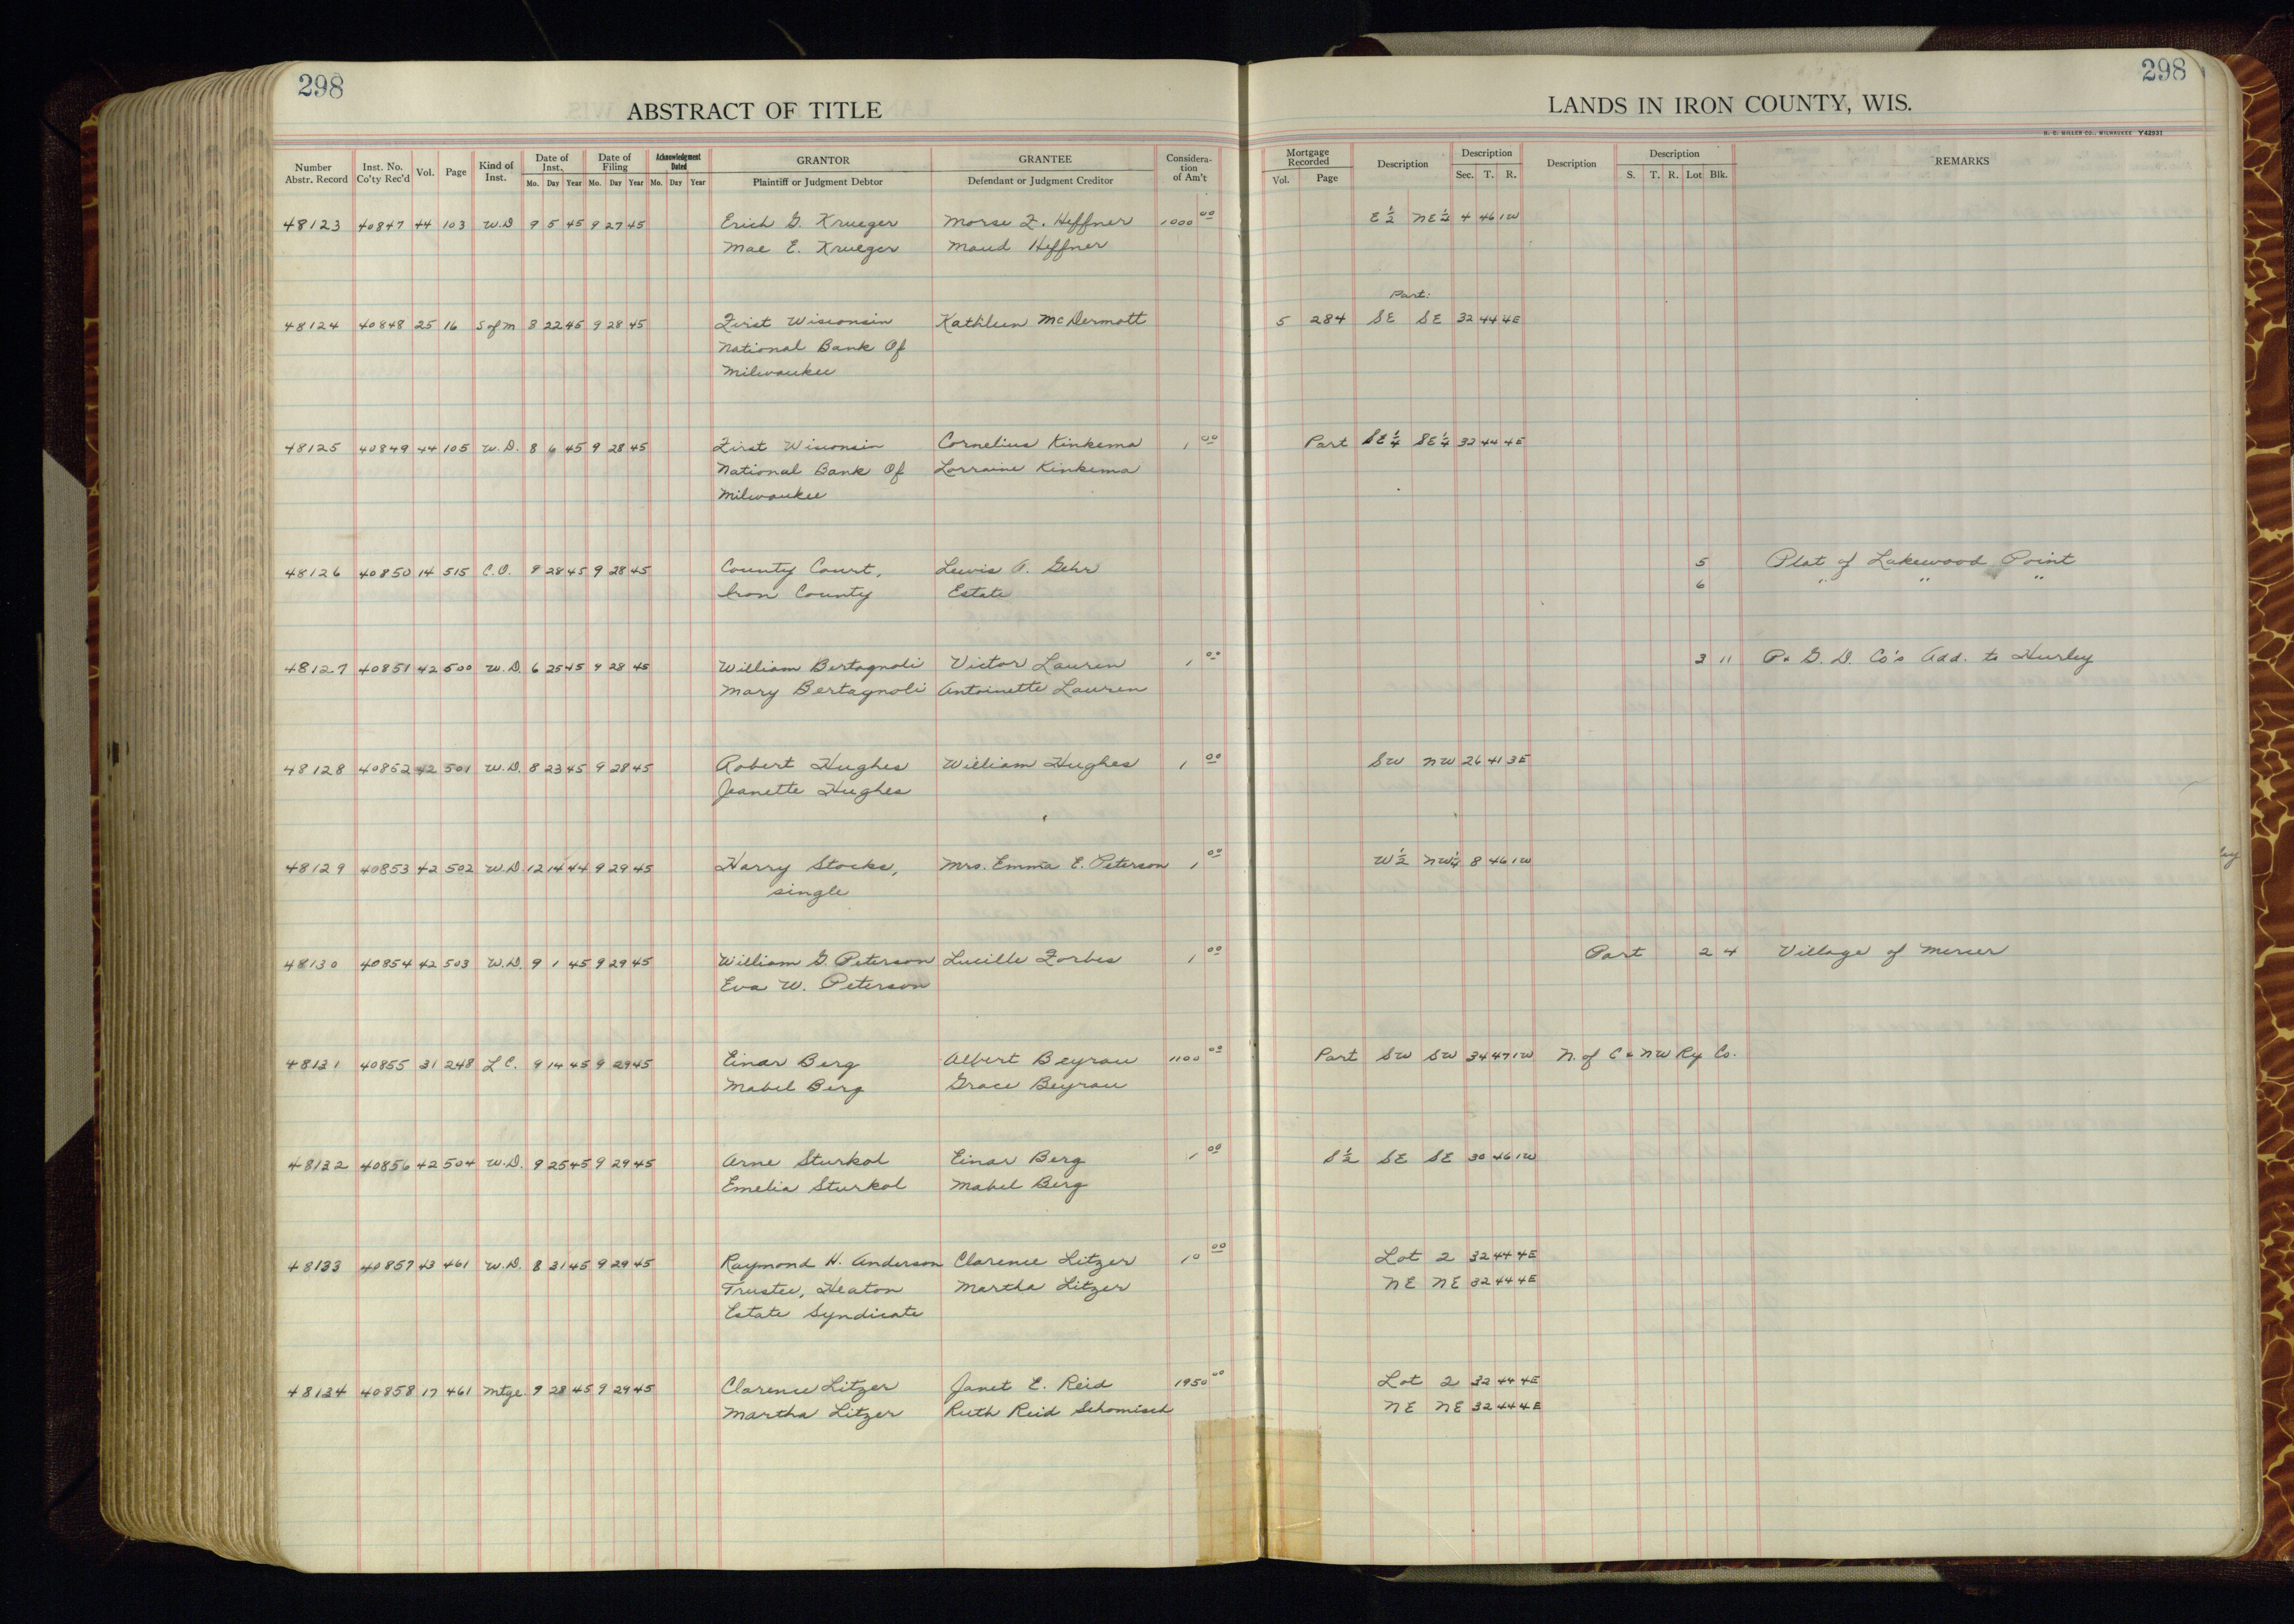 298
298
ABSTRACT OF TITLE
LANDS IN IRON COUNTY, WIS.
H. C. MILLER CO., MILWAUKEE Y42931
Number Abstr. Record Inst. No. Co'ty Rec'd Vol. Page Kind of Inst. Date of Inst. Mo. Day Year Date of Filing Mo. Day Year Acknowledgment Dated Mo. Day Year GRANTOR Plaintiff or Judgment Debtor GRANTEE Defendant or Judgment Creditor Considera- tion of Am't Mortgage Recorded Vol. Page Description Description Sec. T. R. Description Description S. T. R. Lot Blk. REMARKS
48123 40847 44 103 W.D 9 5 45 9 27 45 Erich G. Krueger Morse F. Heffner 1000 00 E½ NE¼ 4 46 1W
Mae E. Krueger Maud Heffner
Part:
48124 40848 25 16 S of M 8 22 45 9 28 45 First Wisconsin Kathleen McDermott 5 284 SE SE 32 44 4E
National Bank Of
Milwaukee
48125 40849 44 105 W.D. 8 6 45 9 28 45 First Wisconsin Cornelius Kinkema 1 00 Part SE¼ SE¼ 32 44 4E
National Bank Of Lorraine Kinkema
Milwaukee
48126 40850 14 515 C.O. 9 28 45 9 28 45 County Court, Lewis A. Gehr 5 Plat of Lakewood Point
Iron County Estate 6 " " "
48127 40851 42 500 W.D. 6 25 45 9 28 45 William Bertagnoli Victor Lauren 1 00 3 11 P. G. D. Co's Add. to Hurley
Mary Bertagnoli Antoinette Lauren
48128 40852 42 501 W.D. 8 23 45 9 28 45 Robert Hughes William Hughes 1 00 SW NW 26 41 3E
Jeanette Hughes
48129 40853 42 502 W.D. 12 14 44 9 29 45 Harry Stocks, Mrs. Emma E. Peterson 1 00 W½ NW¼ 8 46 1W
single
48130 40854 42 503 W.D. 9 1 45 9 29 45 William G. Peterson Lucille Forbes 1 00 Part 2 4 Village of Mercer
Eva W. Peterson
48131 40855 31 248 L C. 9 14 45 9 29 45 Einar Berg Albert Beyrau 1100 00 Part SW SW 34 47 1W N. of C & NW Ry Co.
Mabel Berg Grace Beyrau
48132 40856 42 504 W.D. 9 25 45 9 29 45 Arne Sturkol Einar Berg 1 00 S½ SE SE 30 46 1W
Emelia Sturkol Mabel Berg
48133 40857 43 461 W.D. 8 31 45 9 29 45 Raymond H. Anderson Clarence Litzer 10 00 Lot 2 32 44 4E
Trustee, Heaton Martha Litzer NE NE 32 44 4E
Estate Syndicate
48134 40858 17 461 Mtge. 9 28 45 9 29 45 Clarence Litzer Janet E. Reid 1950 00 Lot 2 32 44 4E
Martha Litzer Ruth Reid Schomisch NE NE 32 44 4E